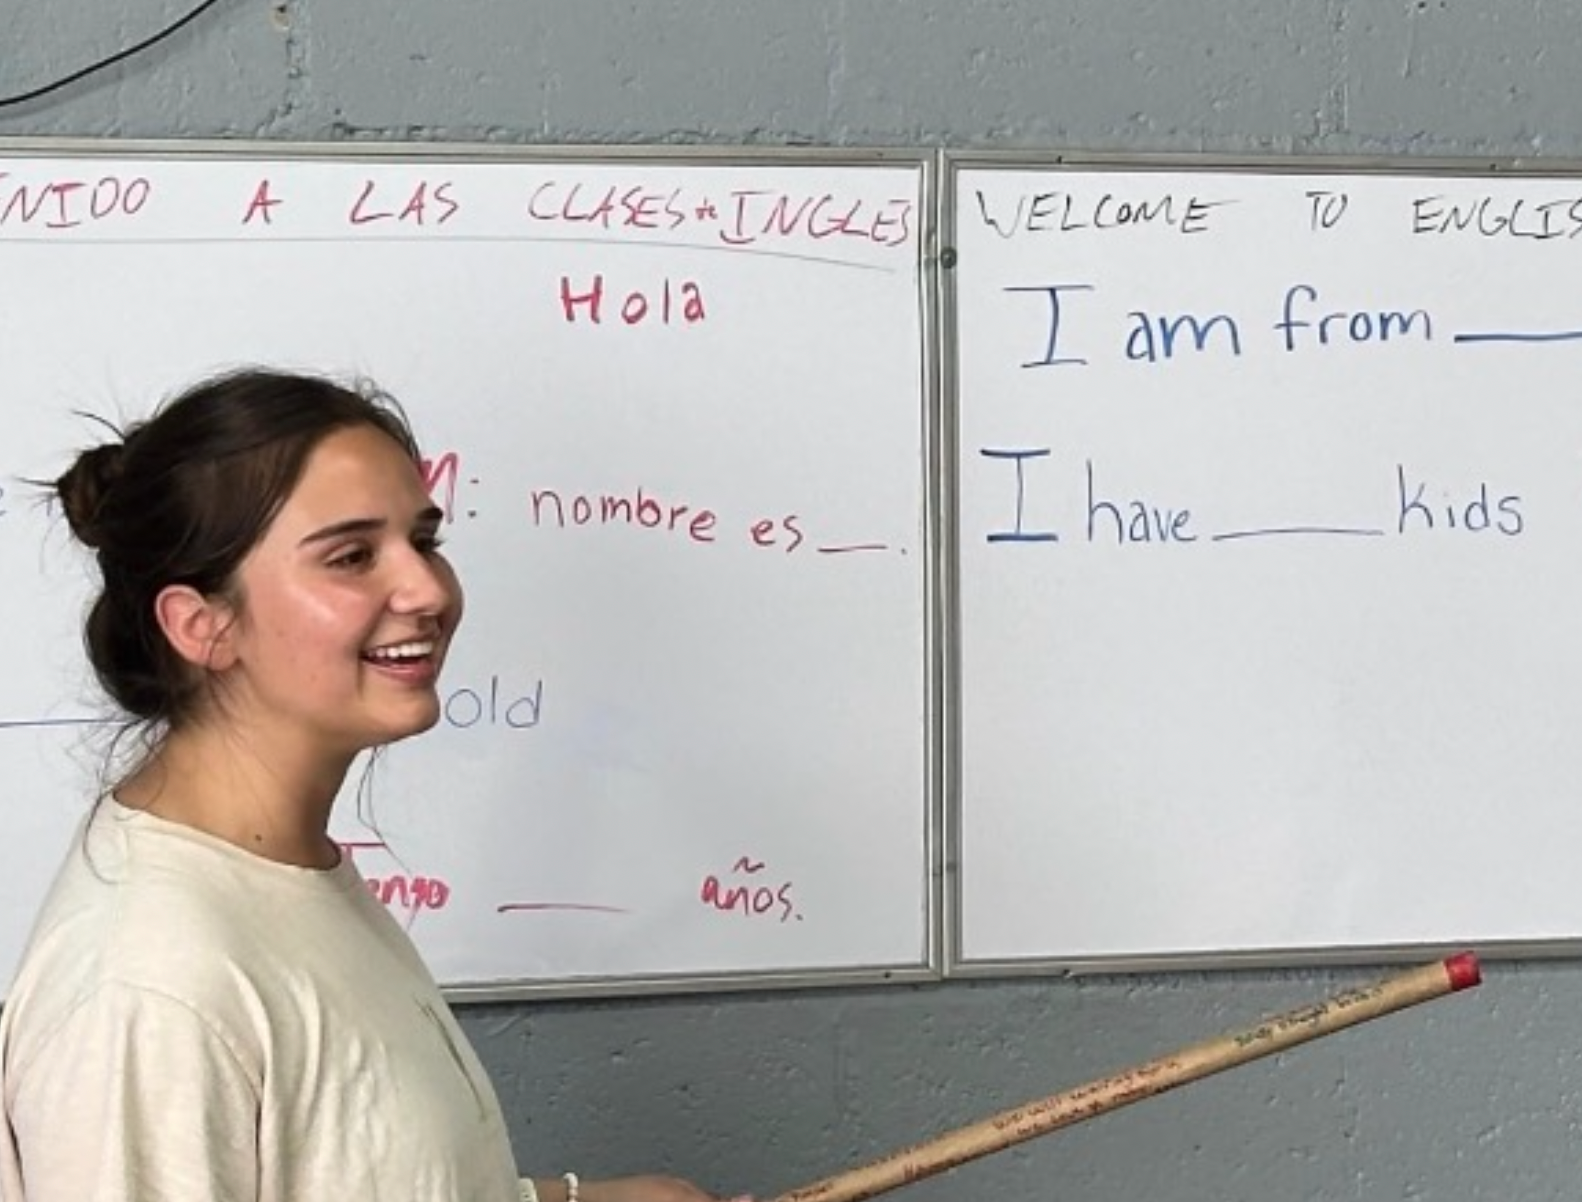 NIDO A LAS CLASES de INGLES
Hola
M: nombre es __.
old
Tengo ____ años.
WELCOME TO ENGLIS
I am from ____
I have ____ kids